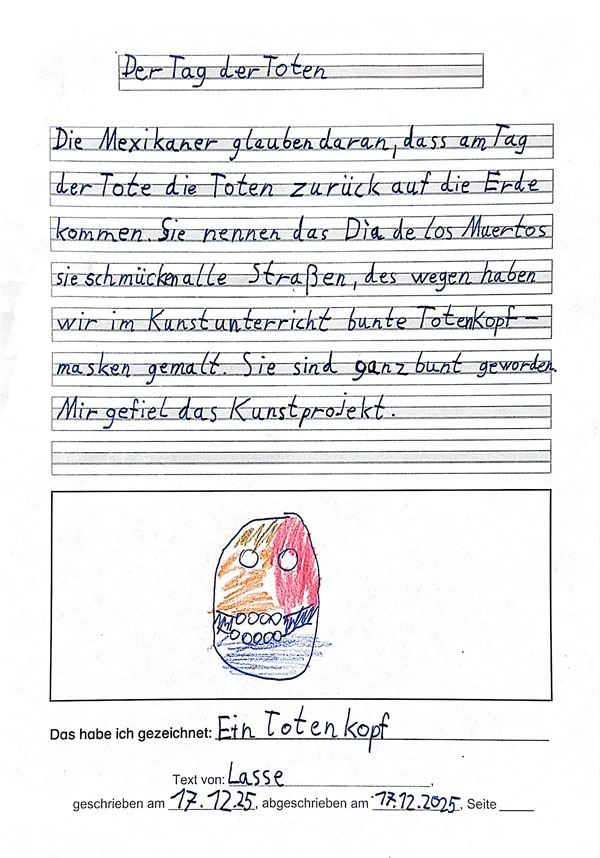 Der Tag der Toten
Die Mexikaner glauben daran, dass am Tag
der Tote die Toten zurück auf die Erde
kommen. Sie nennen das Dia de los Muertos
sie schmücken alle Straßen, des wegen haben
wir im Kunstunterricht bunte Totenkopf-
masken gemalt. Sie sind ganz bunt geworden.
Mir gefiel das Kunstprojekt.
Das habe ich gezeichnet: Ein Totenkopf
Text von: Lasse,
geschrieben am 17.12.25, abgeschrieben am 17.12.2025, Seite